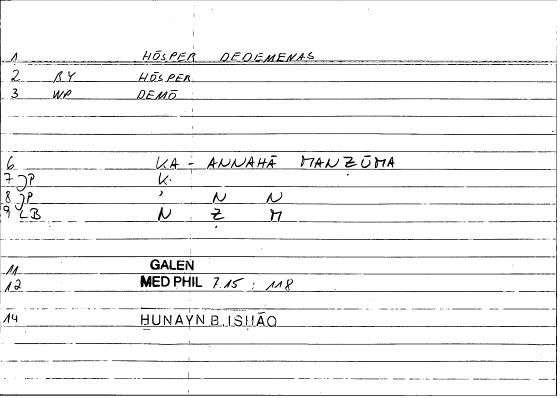 1 HŌSPER DEDEMENAS
2 RY HŌSPER
3 WP DEMŌ
6 KA - ANNAHĀ MANẒŪMA
7 JP K.
8 JP ʾ N N
9 LB N Ẓ M
11 GALEN
12 MED PHIL 7.15 : 118
14 HUNAYN B. ISHĀQ